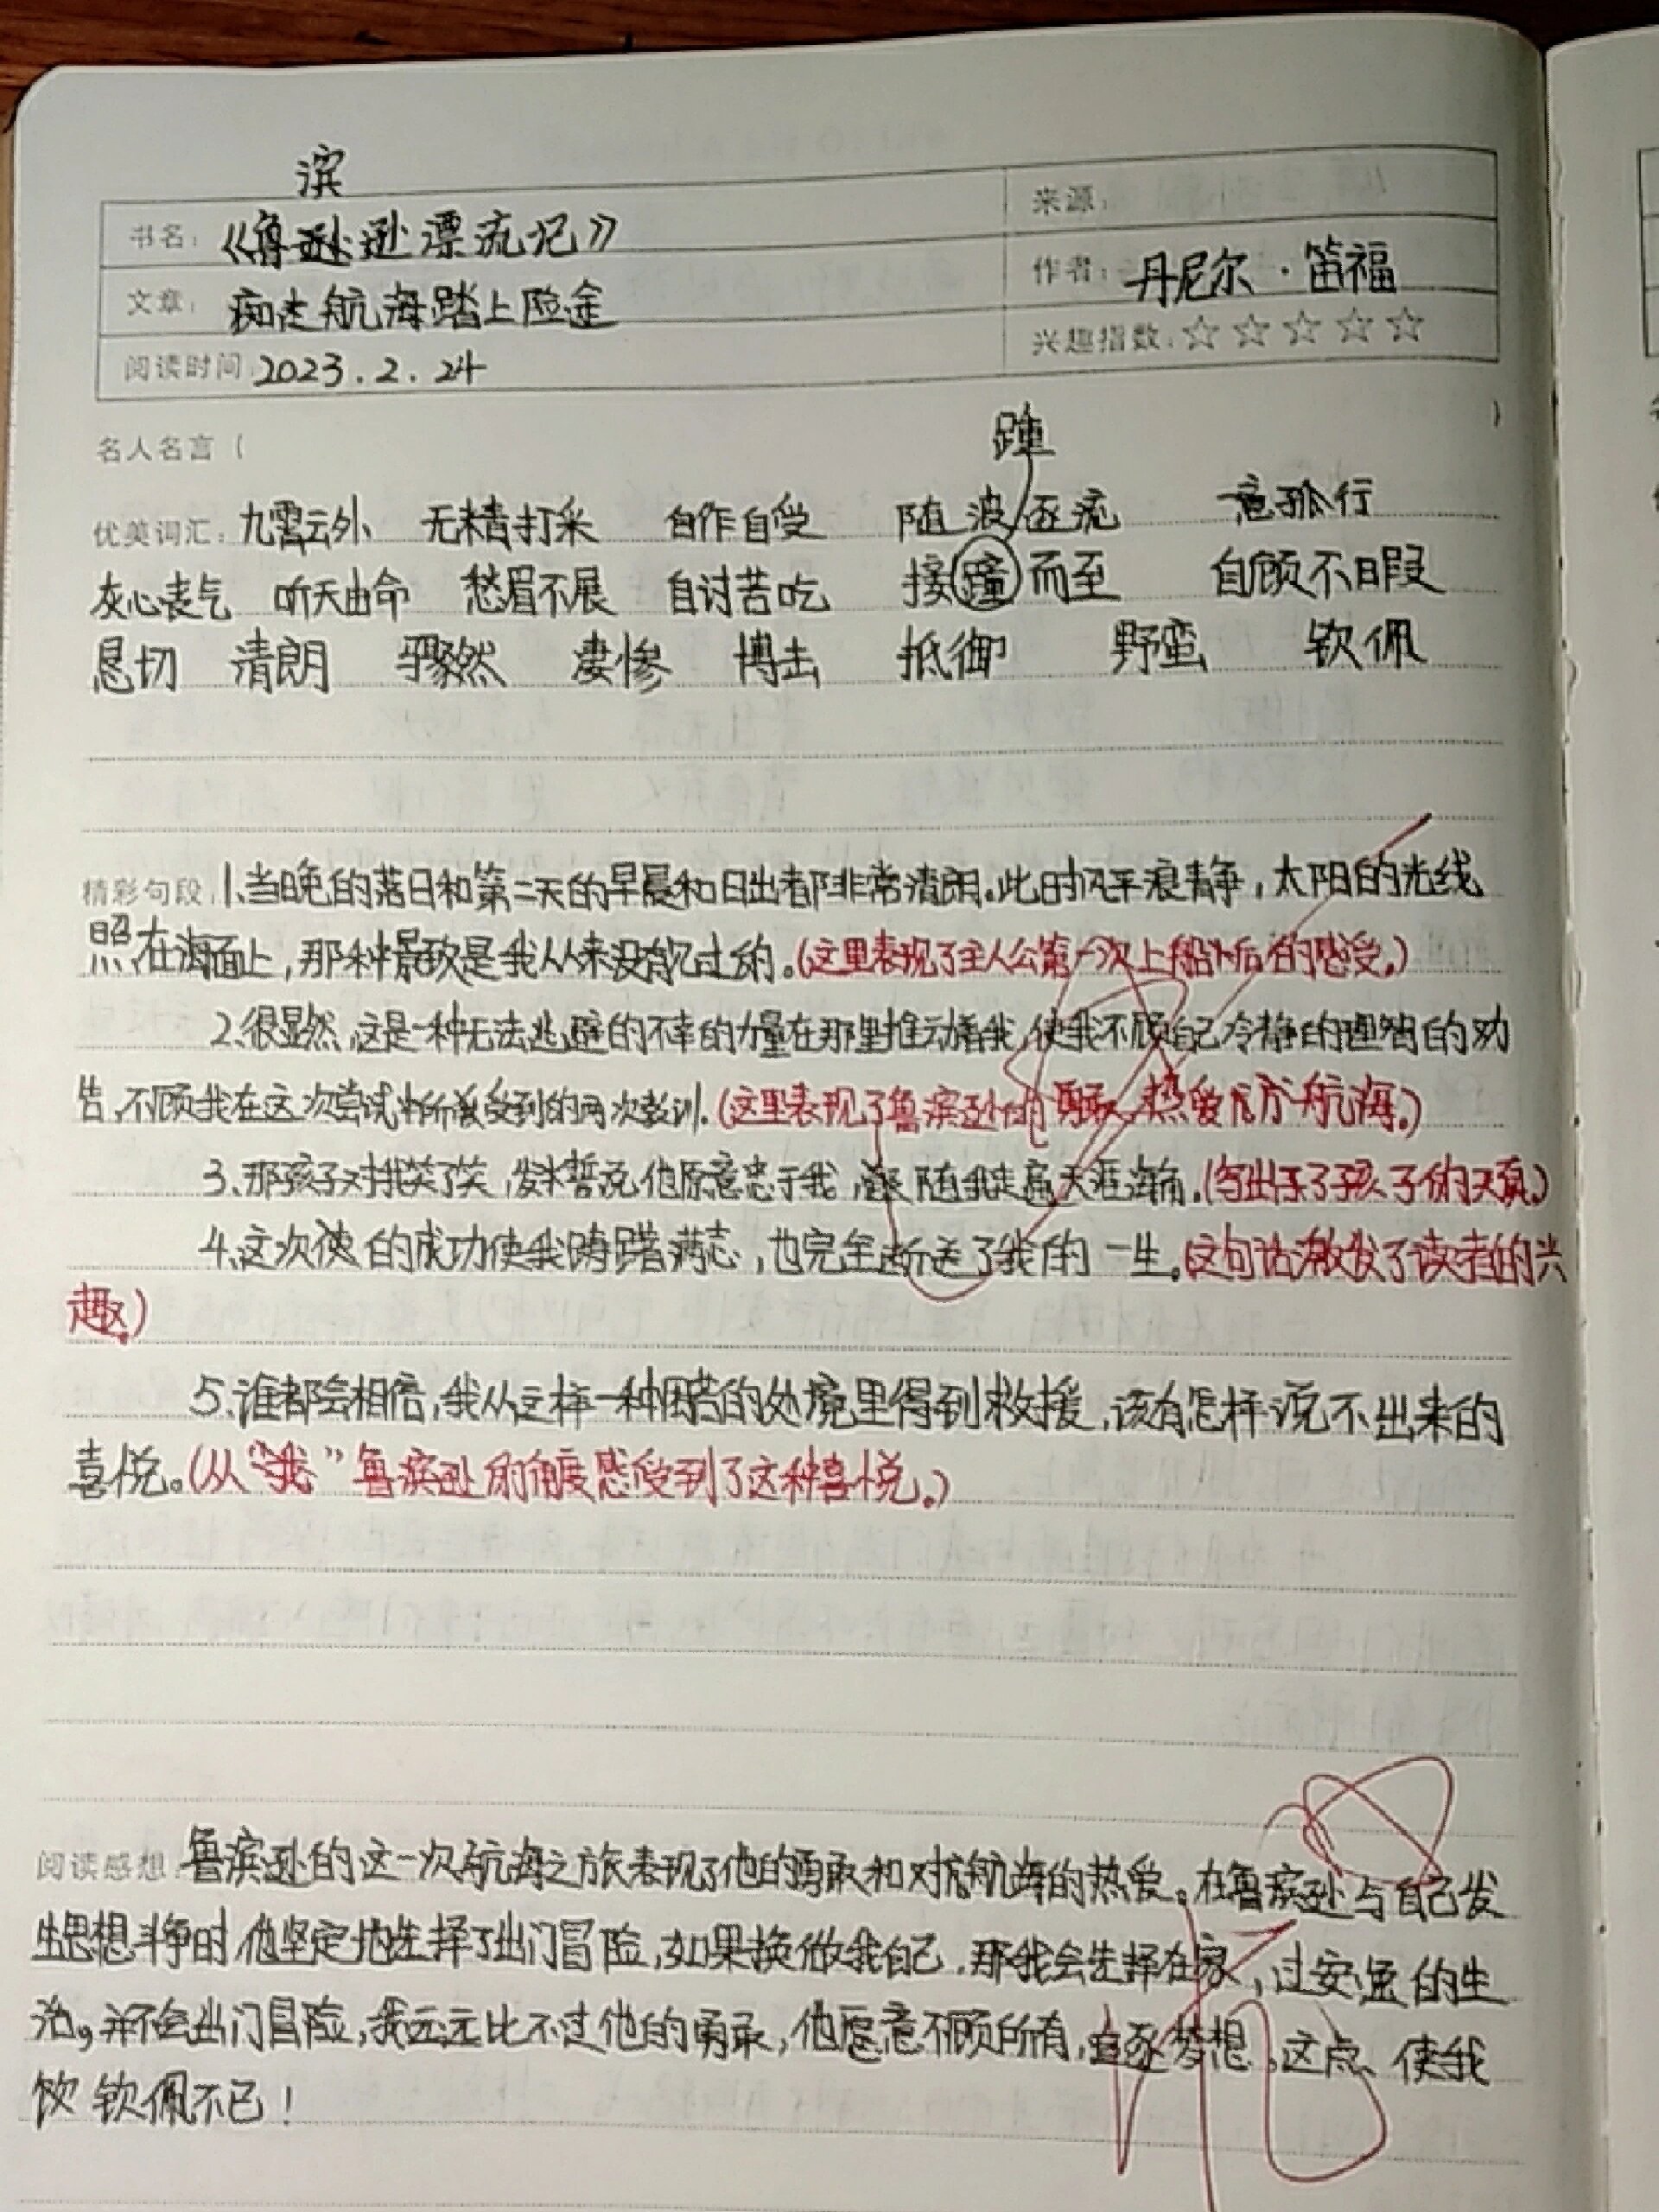 滨
书名：《鲁逊逊漂流记》
来源：
作者：丹尼尔·笛福
文章：痴迷航海踏上险途
兴趣指数：☆☆☆☆☆
阅读时间：2023.2.24
名人名言（ ）
踵
优美词汇：九霄云外 无精打采 自作自受 随波逐流 意孤行
灰心丧气 听天由命 愁眉不展 自讨苦吃 接瞳而至 自顾不暇
恳切 清朗 骤然 凄惨 搏击 抵御 野蛮 钦佩
精彩句段：1、当晚的落日和第二天的早晨和日出都非常清朗。此时风平浪静，太阳的光线
照在海面上，那种景致是我从来没有见过的。（这里表现了主人公第一次上船后的感受。）
2、很显然，这是一种无法逃避的不幸的力量在那里推动着我，使我不顾自己冷静的理智的劝
告，不顾我在这次尝试中所受到的两次教训。（这里表现了鲁滨逊的勇敢、热爱航海。）
3、那孩子对我笑了笑，发誓说他愿意忠于我，跟随我走遍天涯海角。（写出了孩子的天真）
4、这次的成功使我踌躇满志，也完全断送了我的一生。（这句话激发了读者的兴
趣。）
5、谁都会相信，我从这样一种困苦的处境里得到救援，该有怎样说不出来的
喜悦。（从“我”鲁滨逊的角度感受到了这种喜悦。）
阅读感想：鲁滨逊的这一次航海之旅表现了他的勇敢和对航海的热爱。在鲁滨逊与自己发
生思想斗争时，他坚定地选择了出门冒险，如果换做我自己，那我会选择在家，过安逸的生
活，并不会出门冒险，我远远比不过他的勇敢，他愿意不顾所有，追逐梦想，这点，使我
饮钦佩不已！